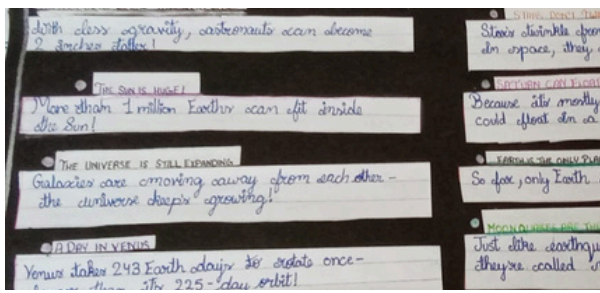 With less gravity, astronauts can become
2 inches taller!
THE SUN IS HUGE!
More than 1 million Earths can fit inside
the Sun!
THE UNIVERSE IS STILL EXPANDING
Galaxies are moving away from each other -
the universe keeps growing!
A DAY IN VENUS
Venus takes 243 Earth days to rotate once -
longer than its 225-day orbit!
STARS DON'T
Stars twinkle
In space, they
SATURN CAN FLOAT
Because its mostly
could float in a
EARTH IS THE ONLY
So far, only Earth
MOONQUAKES ARE
Just like
they're called